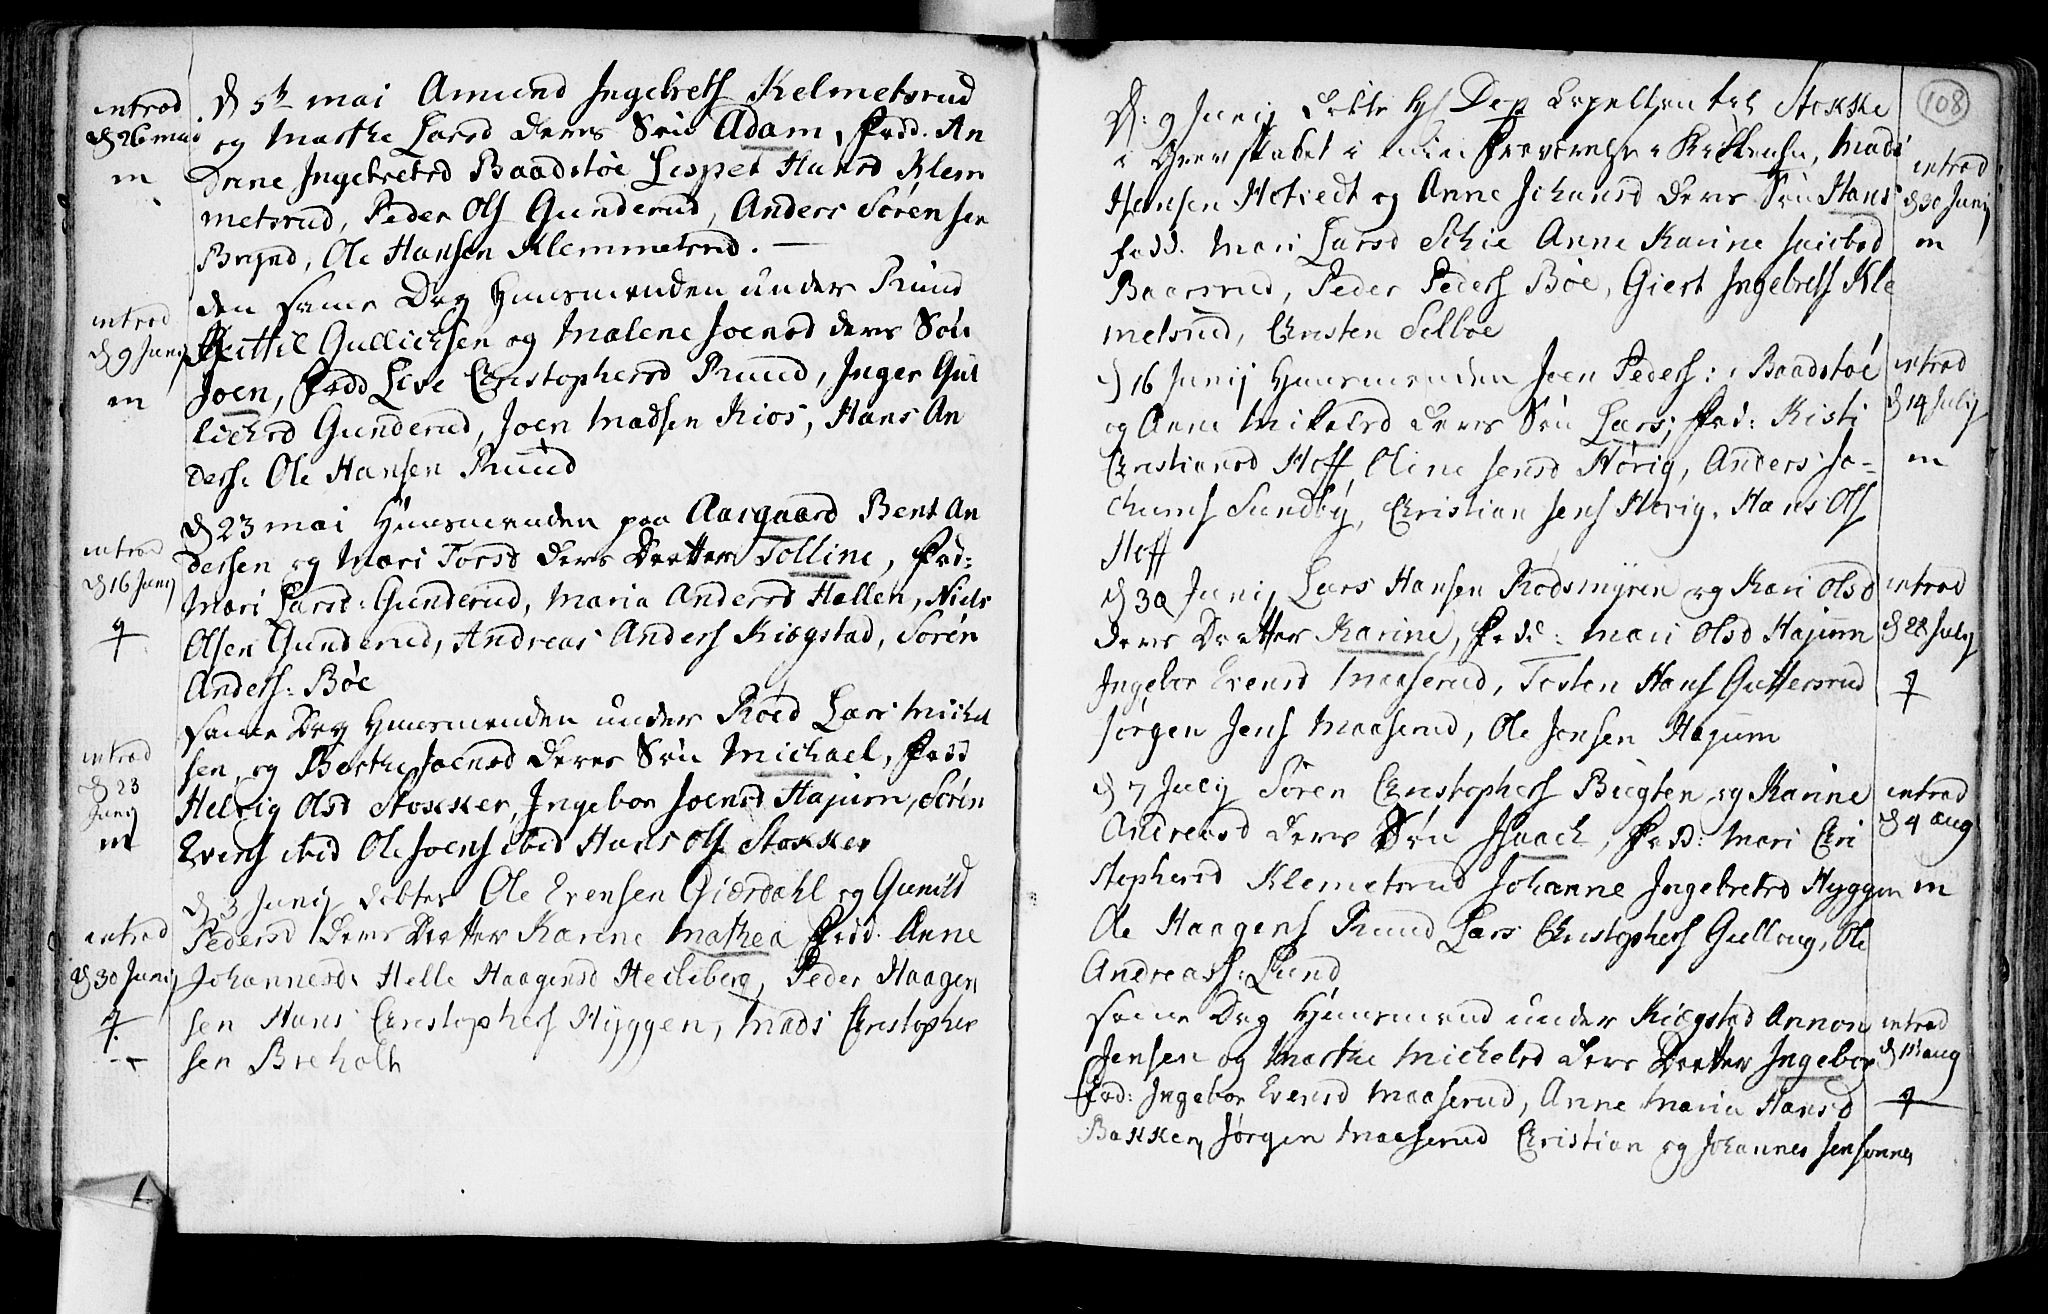 introd
d 26 mai
m
d 5t mai Amund Ingebrets Kelmetsrud
og Marthe Larsd deres Sön Adam, Fadd. An
Drine Ingebretsd Baadstöe Lispet Hansd Klem
metsrud, Peder Ols Gunderud, Anders Sörensen
Brynd, Ole Hansen Klemmetsrud.
introd
d 9 Junij
m
den same Dag Huusmanden under Ruud
Kittil Gullichsen og Malene Joensd deres Sön
Joen, Fadd Live Christophersd Ruud, Inger Gul
lichsd Gunderud, Joen Madsen Kios, Hans An
ders: Ole Hansen Ruud
introd
d 16 Junij
f
d 23 mai Huusmanden paa Aasgaard Bent An
dersen og Mari Torsd deres Datter Tolline, Fad:
Mari Larsd: Gunderud, Maria Andersd Hallen, Niels
Olsen Gunderud, Andreas Anders Kiøgstad, Sören
Anders: Böe
introd
d 23
Junij
m
same Dag Huusmanden under Roed Lars Michel
sen, og Berthe Joensd deres Sön Michael, Fadd
Helvig Olsd Stokker, Ingebor Joensd Hajum, Sören
Evens ibid Ole Joens ibid Hans Ols Stokker
introd
d 30 Junij
f
d 3 Junij døbter Ole Evensen Giærdahl og Gunild
Pedersd deres Datter Karine Mathea Fadd. Anne
Johannesd: Helle Haagensd Hecleberg, Peder Haagen
sen Hans Christophers Hyggen, Mads Christopher
sen Breholt
108
D: 9 Junij døbte Hr Dep Capellan til Stokke
i Grevskabet i min Fraværelse i Kirken, Mads
Hansen Hotvedt og Anne Johansd deres Sön Hans
Fadd. Mari Larsd Schie Anne Karine Jacobsd
Baarsrud, Peder Peders Böe, Giert Ingebrets Kle
metsrud, Christen Selboe
introd
d 30 Junij
m
d 16 Junij Huusmanden Joen Peders: i Baadstöe
og Anne Mikelsd deres Sön Lars, Fad: Kisti
Christiansd Hoff, Oline Jensd Hörig, Anders Jo-
chums Sundby, Christian Jens Hörig, Hans Ols
Hoff
introd
d 14 Julij
m
d 30 Junij Lars Hansen Rodsmyren og Kari Olsd
deres Datter Karine, Fadd: Mari Olsd Hajum
Ingebor Evensd Maaserud, Tosten Hans Guttersrud
Jörgen Jens Maaserud, Ole Jensen Hajum
introd
d 28 Julij
f
d 7 Julij Sören Christophers Biigten og Karine
Andreasd deres Sön Isaach, Fadd: Mari Chri
stophersd Klemetsrud Johanne Ingebretsd Hyggen
Ole Haagens Ruud Lars Christophers Gulloug, Ole
Andreass: Lund
introd
d 4 aug
m
same Dag Huusmand under Kiøgstad Annon
Jensen og Marthe Michelsd deres Datter Ingebor
Fad: Ingebor Evensd Maaserud, Anne Maria Hansd
Bakken, Jörgen Maaserud Christian og Johannes Jensönner
introd
d 11 aug
f